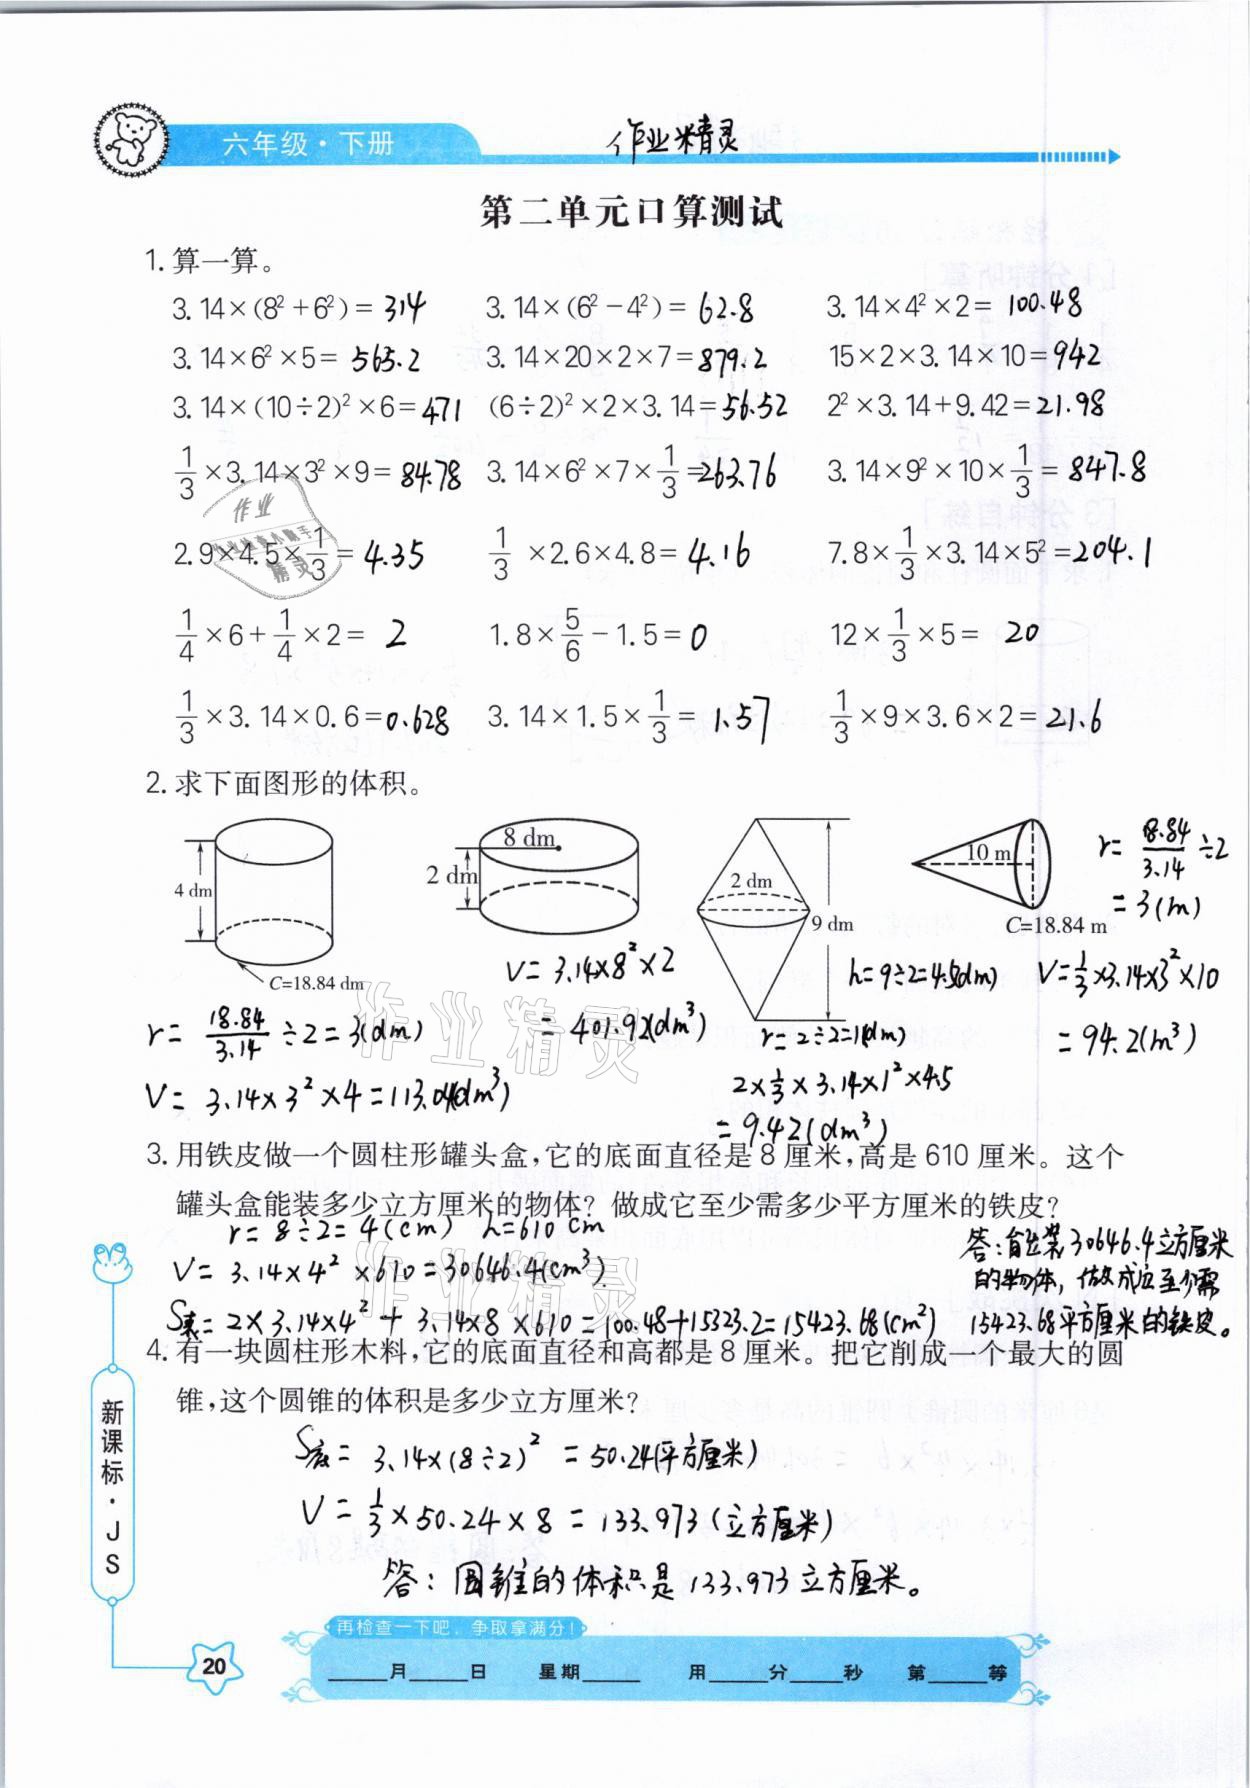 六年级·下册
作业精灵
第二单元口算测试
1. 算一算。
3.14×(8²+6²)=314 3.14×(6²-4²)=62.8 3.14×4²×2=100.48
3.14×6²×5=565.2 3.14×20×2×7=879.2 15×2×3.14×10=942
3.14×(10÷2)²×6=471 (6÷2)²×2×3.14=56.52 2²×3.14+9.42=21.98
1/3×3.14×3²×9=84.78 3.14×6²×7×1/3=263.76 3.14×9²×10×1/3=847.8
2.9×4.5×1/3=4.35 1/3×2.6×4.8=4.16 7.8×1/3×3.14×5²=204.1
1/4×6+1/4×2=2 1.8×5/6-1.5=0 12×1/3×5=20
1/3×3.14×0.6=0.628 3.14×1.5×1/3=1.57 1/3×9×3.6×2=21.6
2. 求下面图形的体积。
4 dm
C=18.84 dm
r=18.84/3.14÷2=3(dm)
V=3.14×3²×4=113.04(dm³)
8 dm
2 dm
V=3.14×8²×2
=401.92(dm³)
2 dm
9 dm
h=9÷2=4.5(dm)
r=2÷2=1(dm)
2×1/3×3.14×1²×4.5
=9.42(dm³)
10 m
C=18.84 m
r=18.84/3.14÷2
=3(m)
V=1/3×3.14×3²×10
=94.2(m³)
3. 用铁皮做一个圆柱形罐头盒,它的底面直径是8厘米,高是610厘米。这个
罐头盒能装多少立方厘米的物体?做成它至少需多少平方厘米的铁皮?
r=8÷2=4(cm) h=610cm
V=3.14×4²×610=30646.4(cm³)
S表=2×3.14×4²+3.14×8×610=100.48+15323.2=15423.68(cm²)
答:能装30646.4立方厘米
的物体,做成它至少需
15423.68平方厘米的铁皮。
4. 有一块圆柱形木料,它的底面直径和高都是8厘米。把它削成一个最大的圆
锥,这个圆锥的体积是多少立方厘米?
S底=3.14×(8÷2)²=50.24(平方厘米)
V=1/3×50.24×8=133.973(立方厘米)
答:圆锥的体积是133.973立方厘米。
新课标·JS
再检查一下吧,争取拿满分!
20
____月____日 星期____ 用____分____秒 第____等
作业
作业检查小助手
精灵
作业精灵
作业精灵